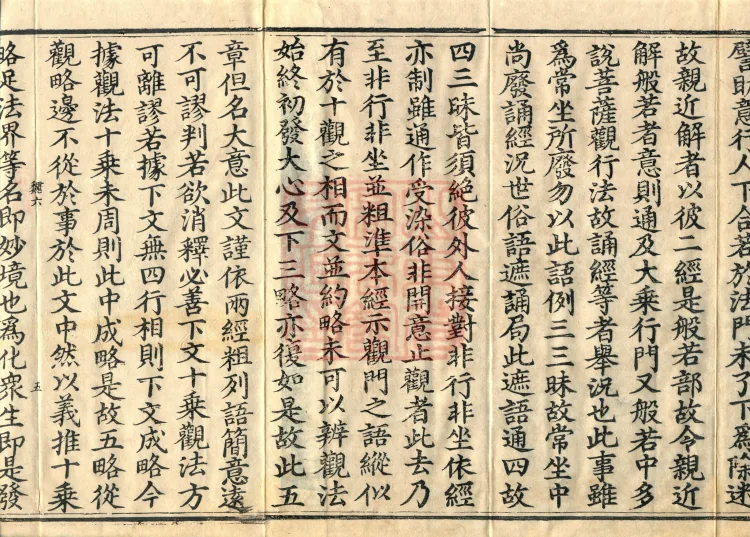 譬助意行人下合若於法門未了下爲除迷
故親近解者以彼二經是般若部故令親近
解般若者意則通及大乘行門又般若中多
說菩薩觀行法故誦經等者舉況也此事雖
爲常坐所廢勿以此語例三三昧故常坐中
尚廢誦經況世俗語遮誦局此遮語通四故
四三昧皆須絶彼外人接對非行非坐依經
亦制雖通作受染俗非開意止觀者此去乃
至非行非坐並粗準本經示觀門之語縱似
有於十觀之相而文並約略未可以辨觀法
始終初發大心及下三略亦復如是故此五
章但名大意此文謹依兩經粗列語簡意遠
不可謬判若欲消釋必善下文十乘觀法方
可離謬若據下文無四行相則下文成略今
據觀法十乘未周則此中成略是故五略從
觀略邊不從於事於此文中然以義推十乘
五
略足法界等名即妙境也爲化衆生即是發